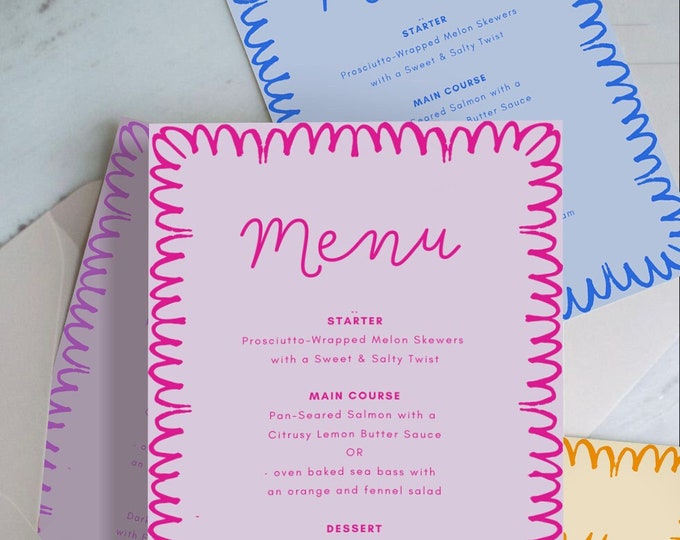 STARTER
Prosciutto-Wrapped Melon Skewers
with a Sweet & Salty Twist
MAIN COURSE
Seared Salmon with a
Butter Sauce
Menu
STÄRTER
Prosciutto-Wrapped Melon Skewers
with a Sweet & Salty Twist
MAIN COURSE
Pan-Seared Salmon with a
Citrusy Lemon Butter Sauce
OR
- oven baked sea bass with
an orange and fennel salad
DESSERT